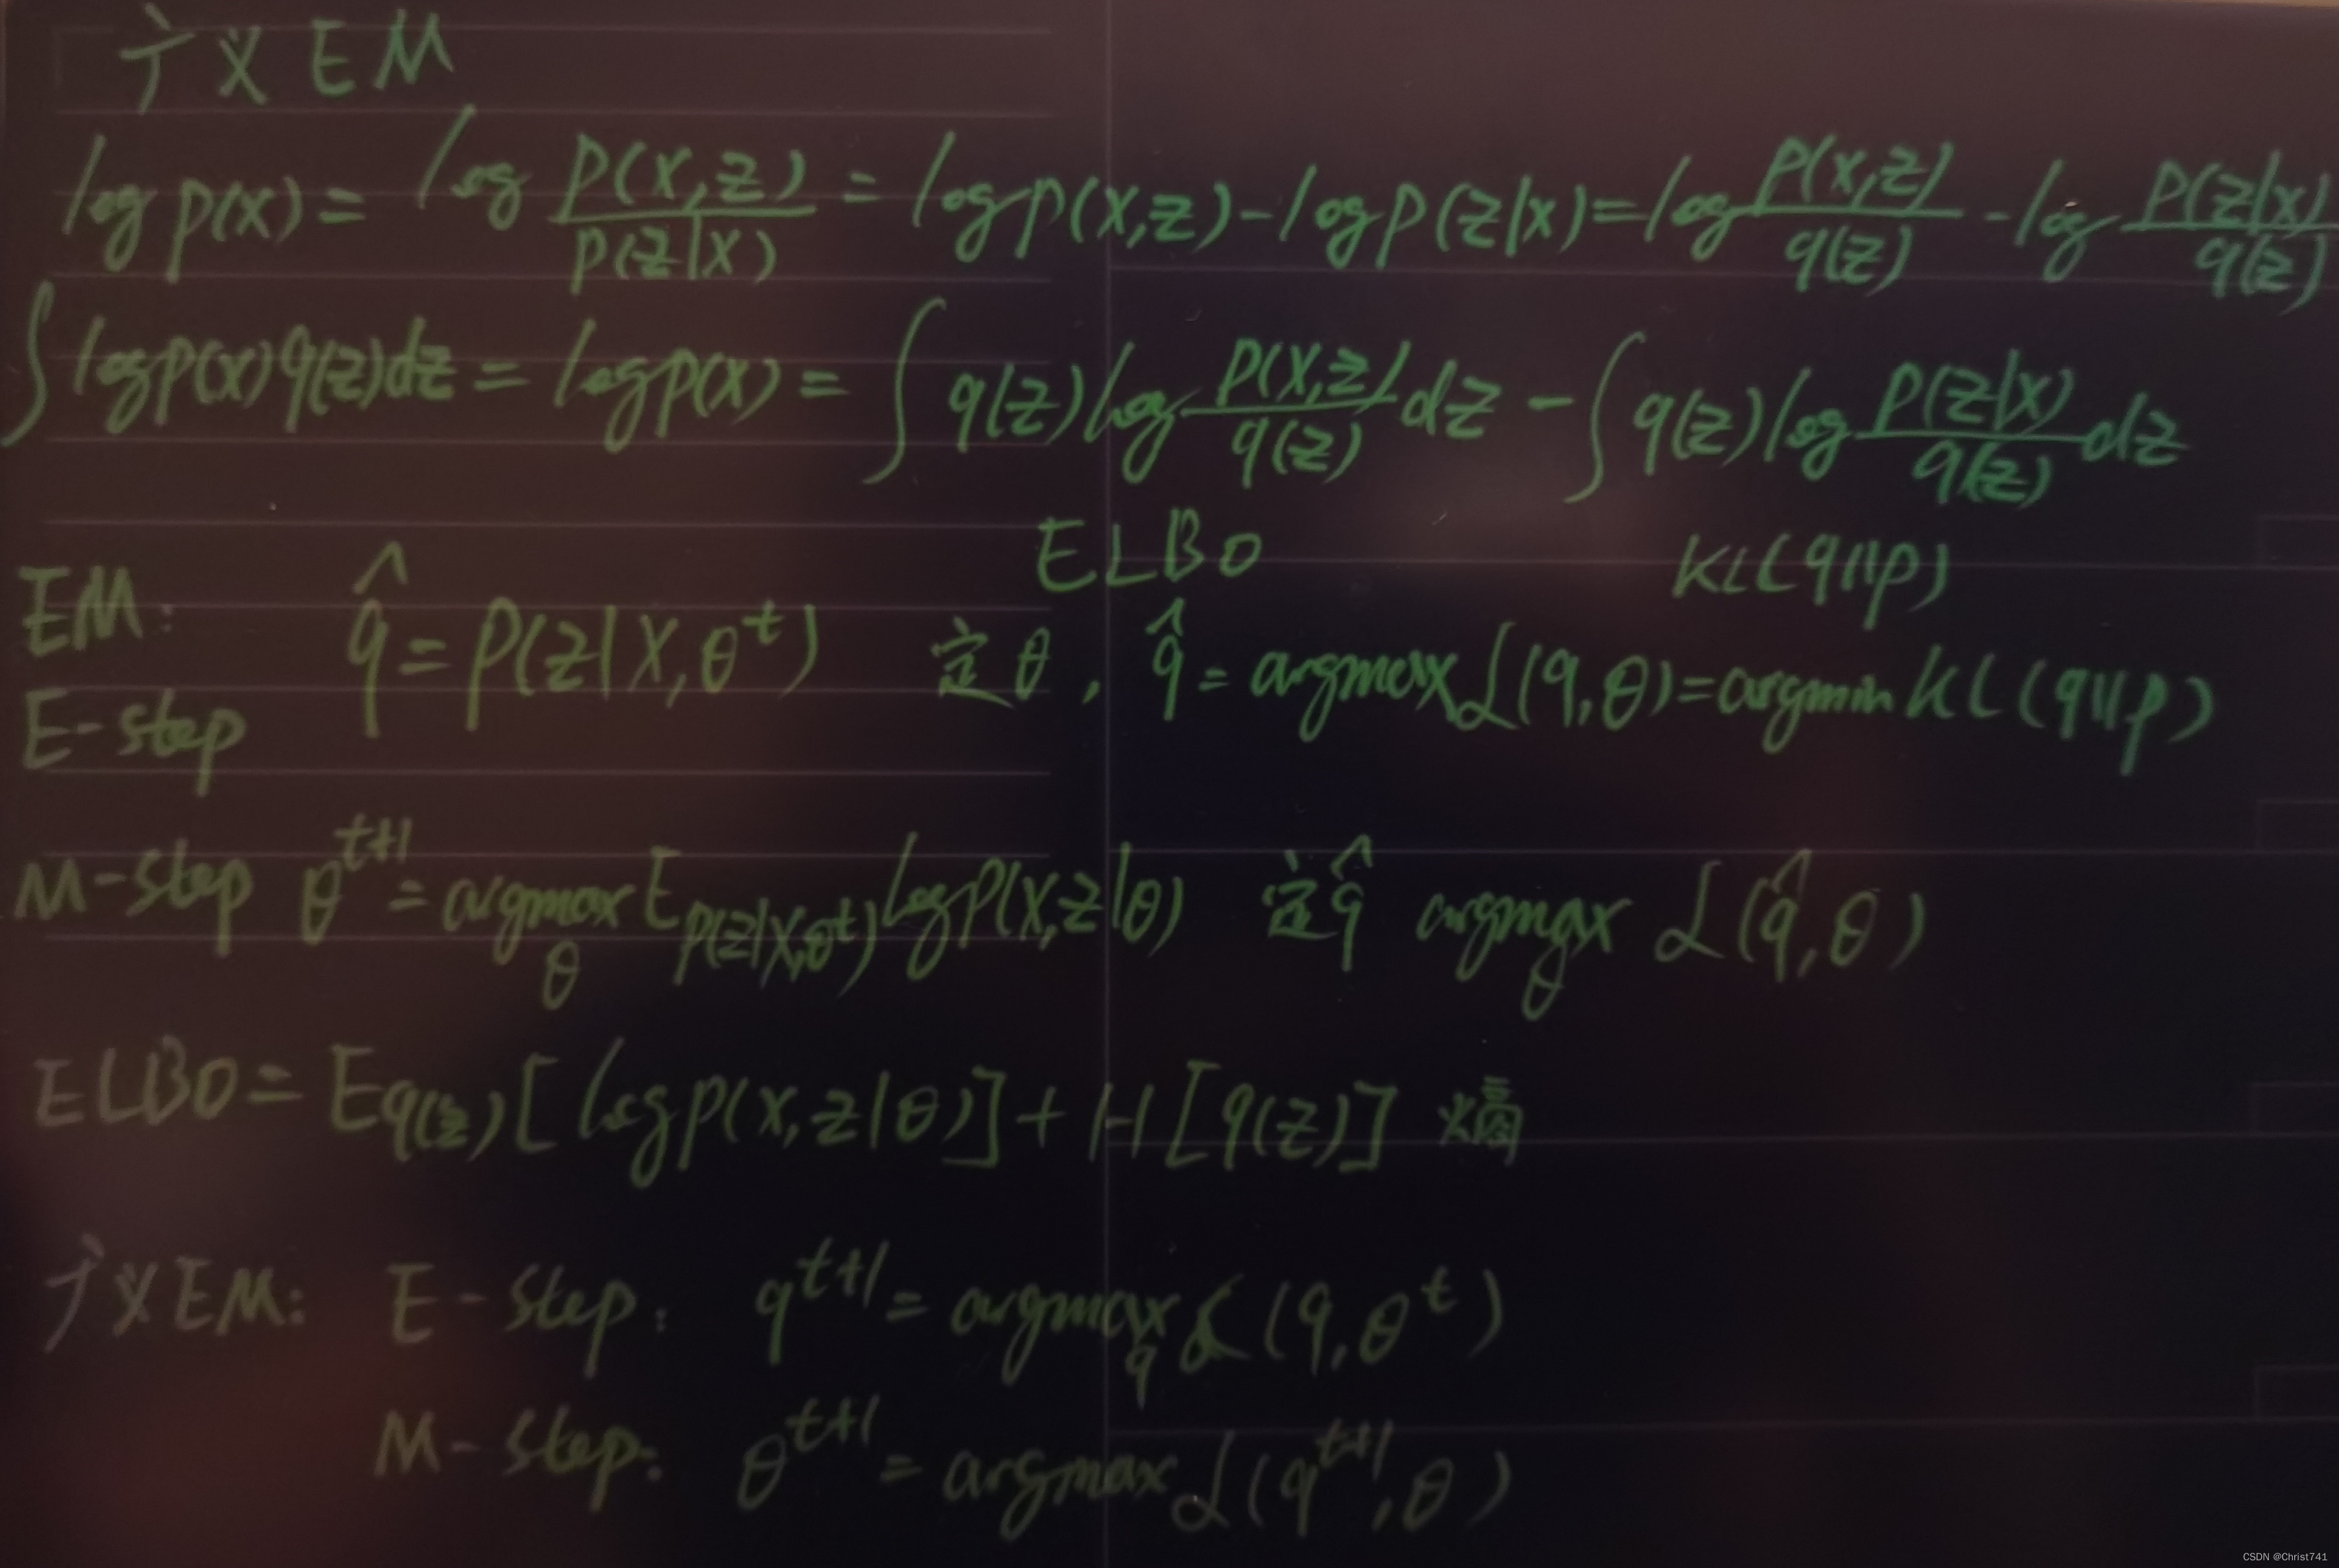 广义EM
log p(x) = log \frac{p(x,z)}{p(z|x)} = log p(x,z) - log p(z|x) = log \frac{p(x,z)}{q(z)} - log \frac{p(z|x)}{q(z)}
∫ log p(x) q(z) dz = log p(x) = ∫ q(z) log \frac{p(x,z)}{q(z)} dz - ∫ q(z) log \frac{p(z|x)}{q(z)} dz
ELBO KL(q||p)
EM:
E-step \hat{q} = p(z|x,θ^t) 定θ, \hat{q} = argmax L(q,θ) = argmin KL(q||p)
M-step θ^{t+1} = argmax_θ E_{p(z|x,θ^t)} log p(x,z|θ) 定\hat{q} argmax_θ L(\hat{q},θ)
ELBO = E_{q(z)}[log p(x,z|θ)] + H[q(z)] 熵
广义EM: E-step: q^{t+1} = argmax_q L(q,θ^t)
M-step: θ^{t+1} = argmax L(q^{t+1},θ)
CSDN @Christ741